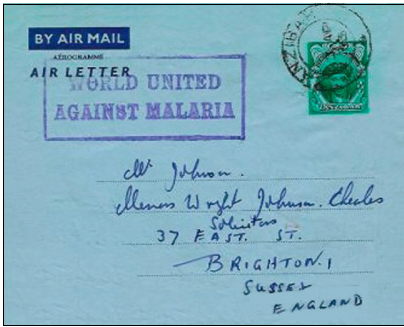 BY AIR MAIL
AÉROGRAMME
AIR LETTER
WORLD UNITED
AGAINST MALARIA
ZANZIBAR
Mr Johnson.
Messrs Wright Johnson
Solicitors
37 EAST. ST.
BRIGHTON.1
SUSSEX
ENGLAND